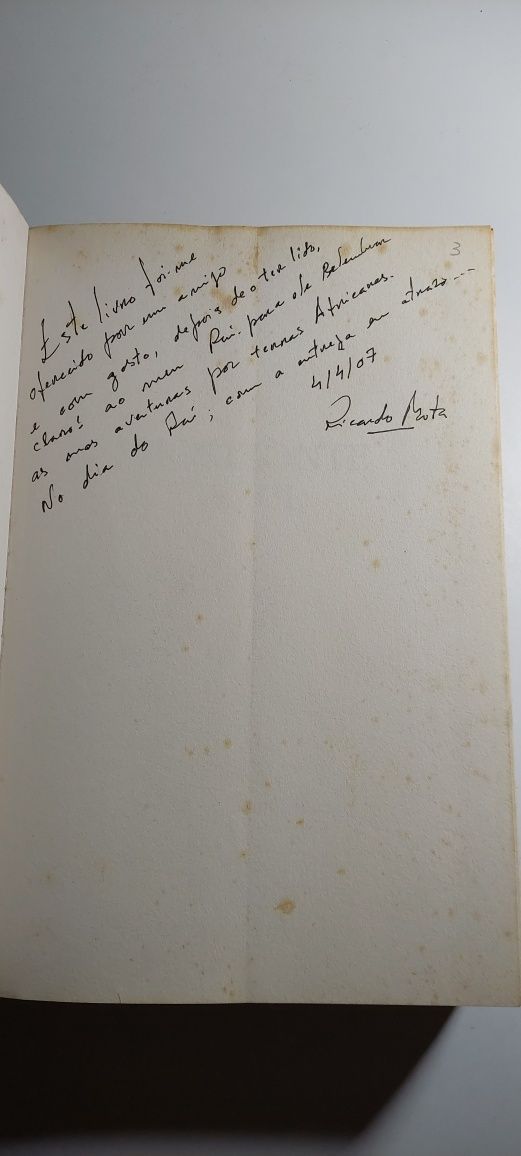 3
Este livro foi-me
oferecido por um amigo
e com gosto, depois de o ter lido,
ao meu Pai. para ele Relembrar
as aventuras por terras Africanas.
No dia do Pai, com a entrega em atrazo...
4/4/07
Ricardo Mota